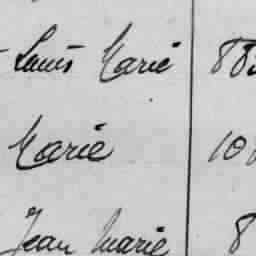 Louis Marie 88
Marie 10
Jean Marie 8